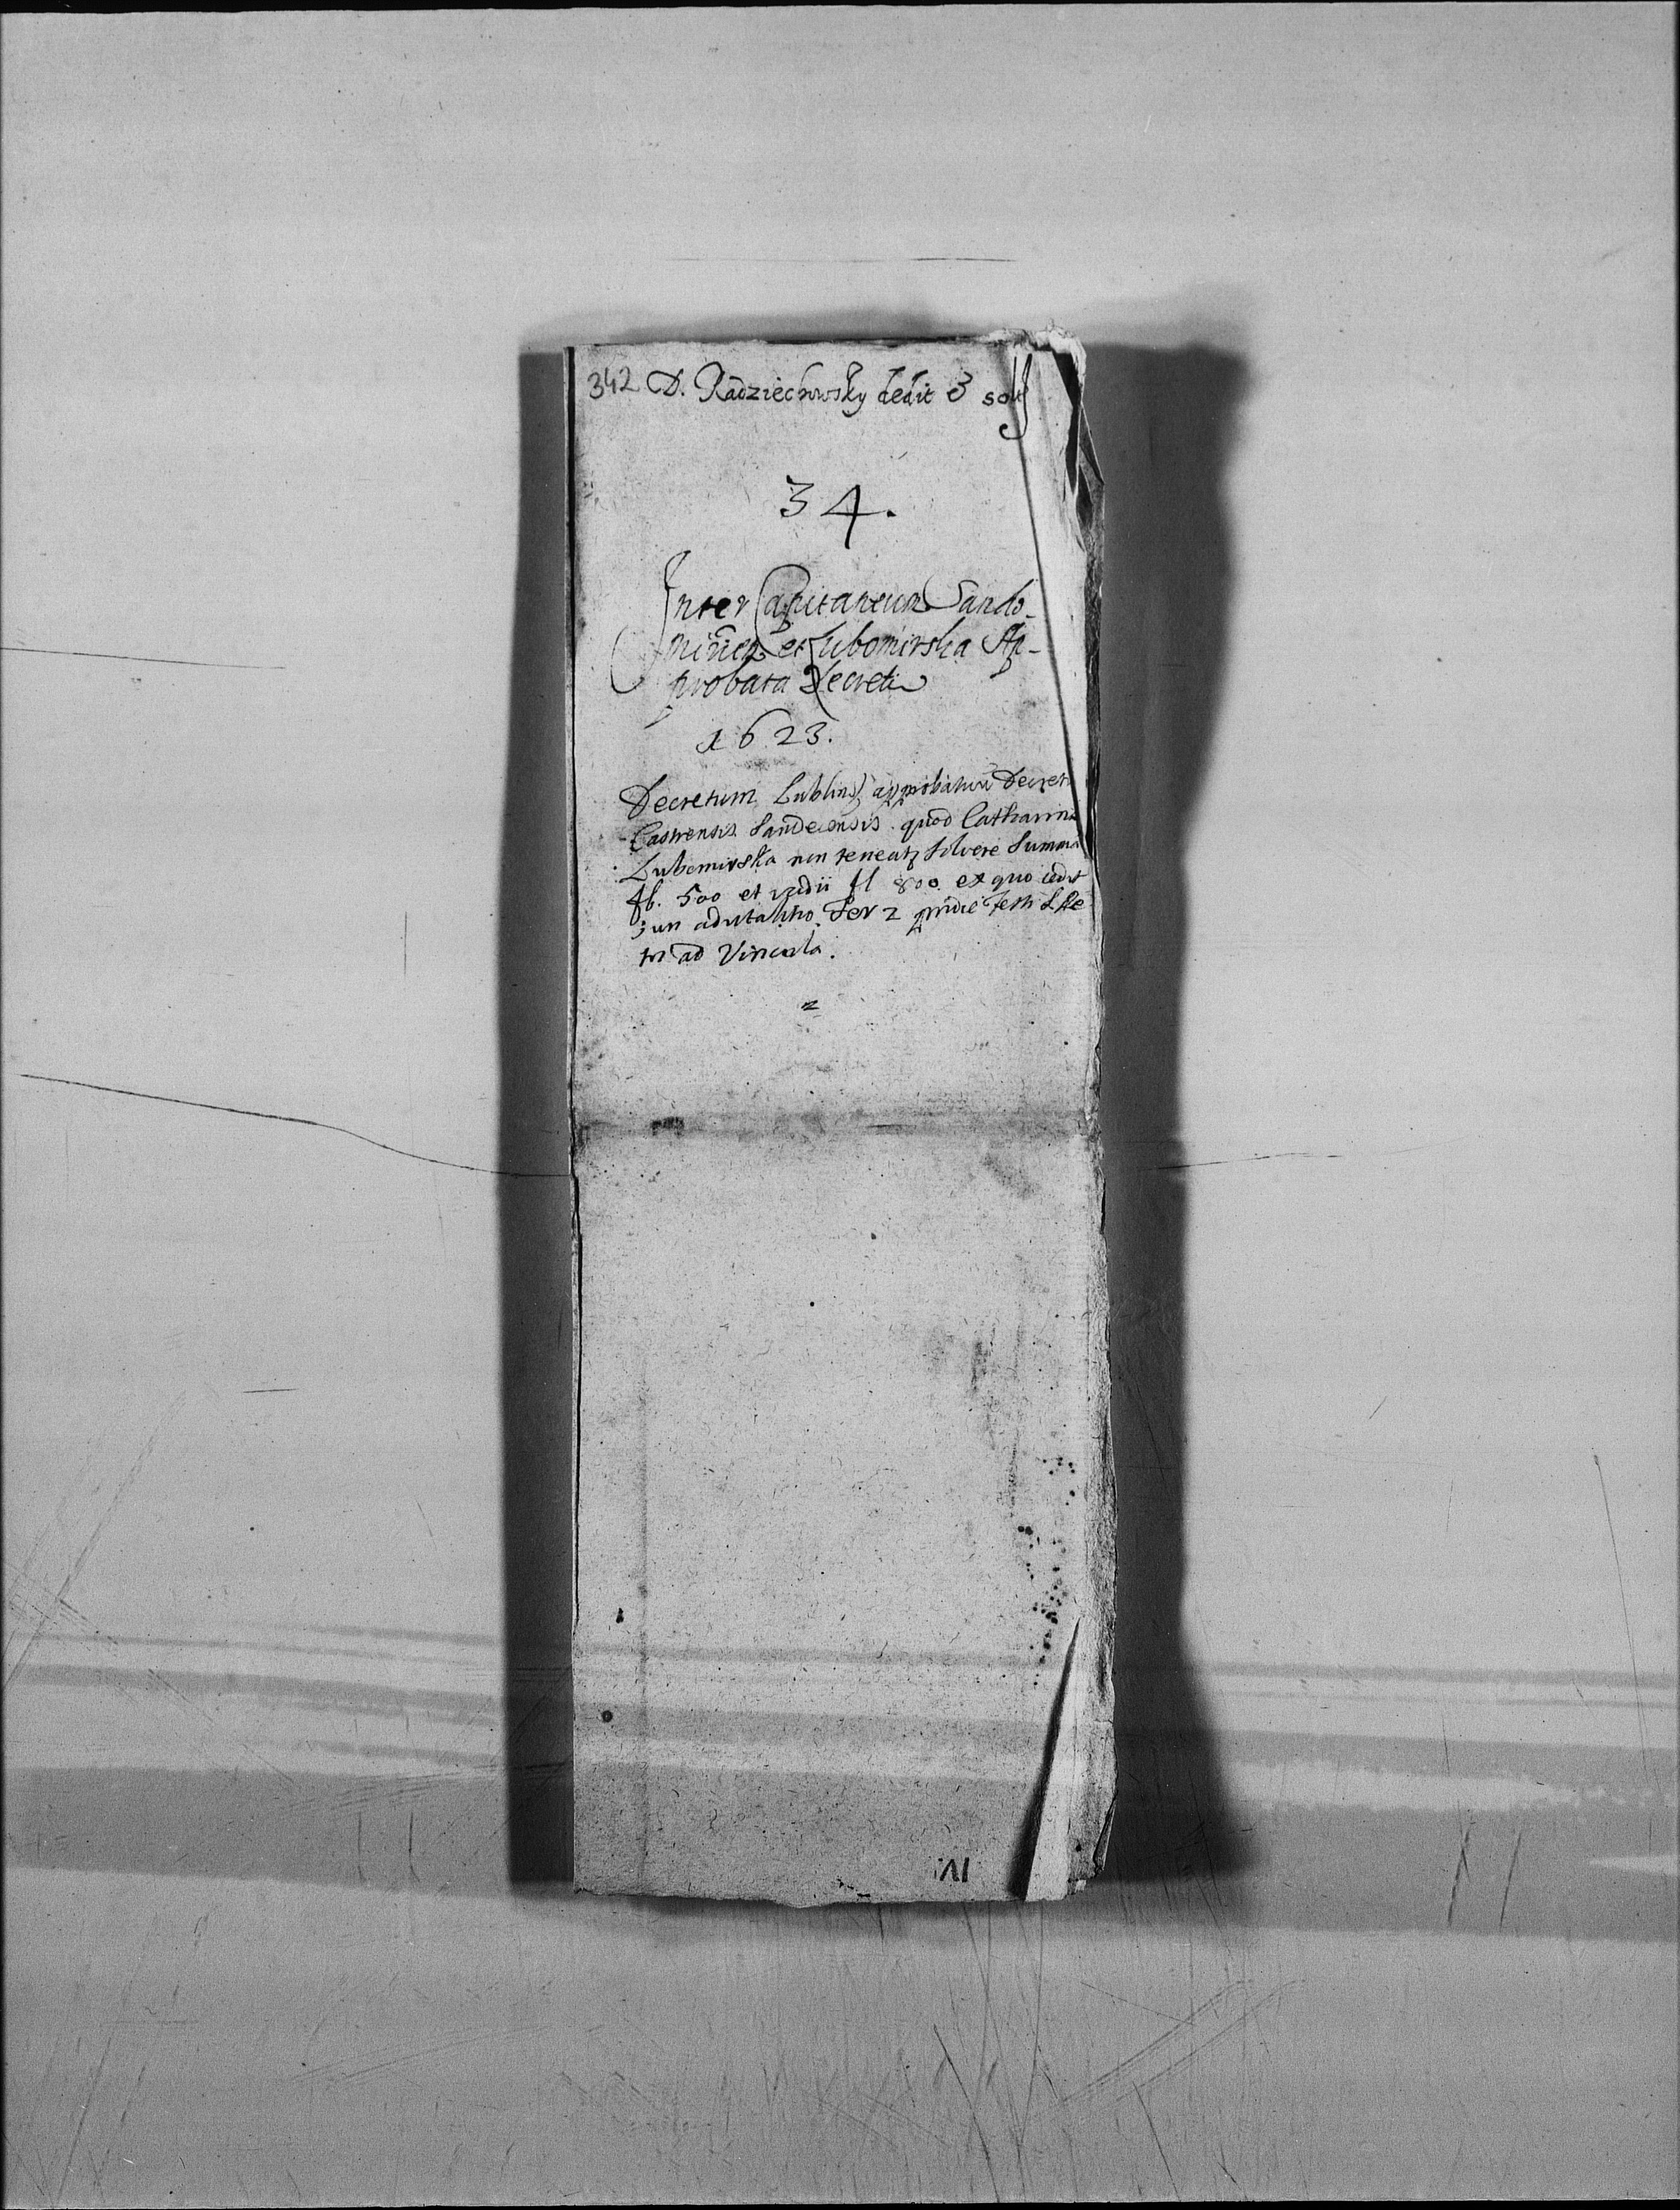 342 D. Radziechowsky dedit 3 sol
34.
Inter Capitaneum Sando-
mirien et Lubomirska Ap-
probata Decreti
1623.
Decretum Lublin approbatum Decreti
Castrensis Sandecensis quod Catharina
Lubomirska non teneatz solvere Summa
fl. 500 et vadii fl 800 ex quo
Fer 2 pridie festi S Pe
tri ad Vincula.
2
VI